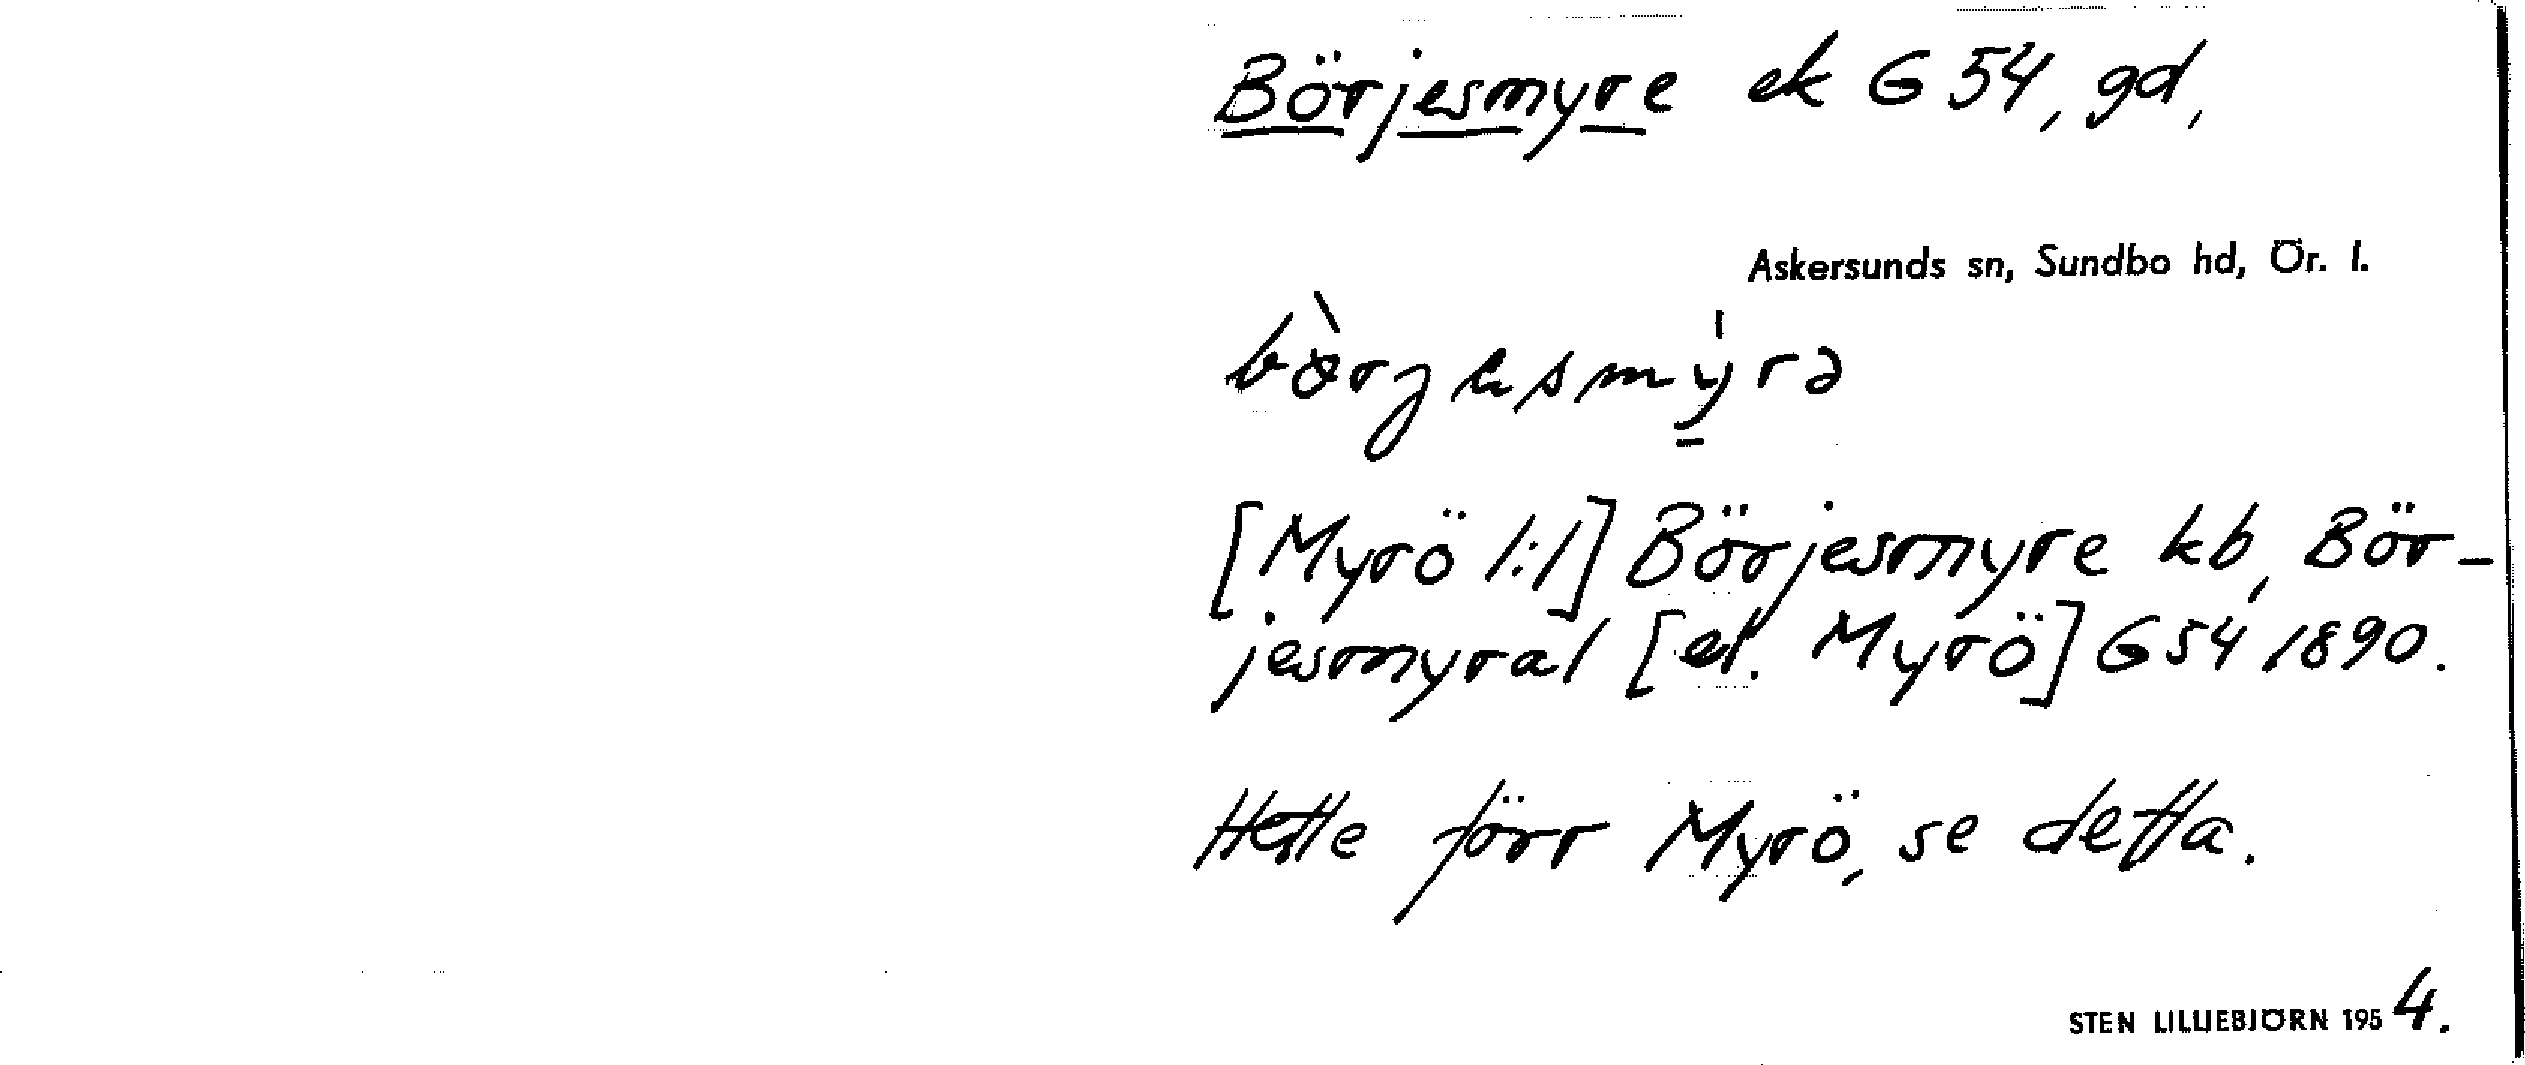 Börjesmyre ek G 54, gd,
Askersunds sn, Sundbo hd, Ör. l.
[Myrö 1:1] Börjesmyre kb, Bör-
jesmyral [el. Myrö] G 54 1890.
Hette förr Myrö, se detta.
STEN LILLIEBJÖRN 1954.